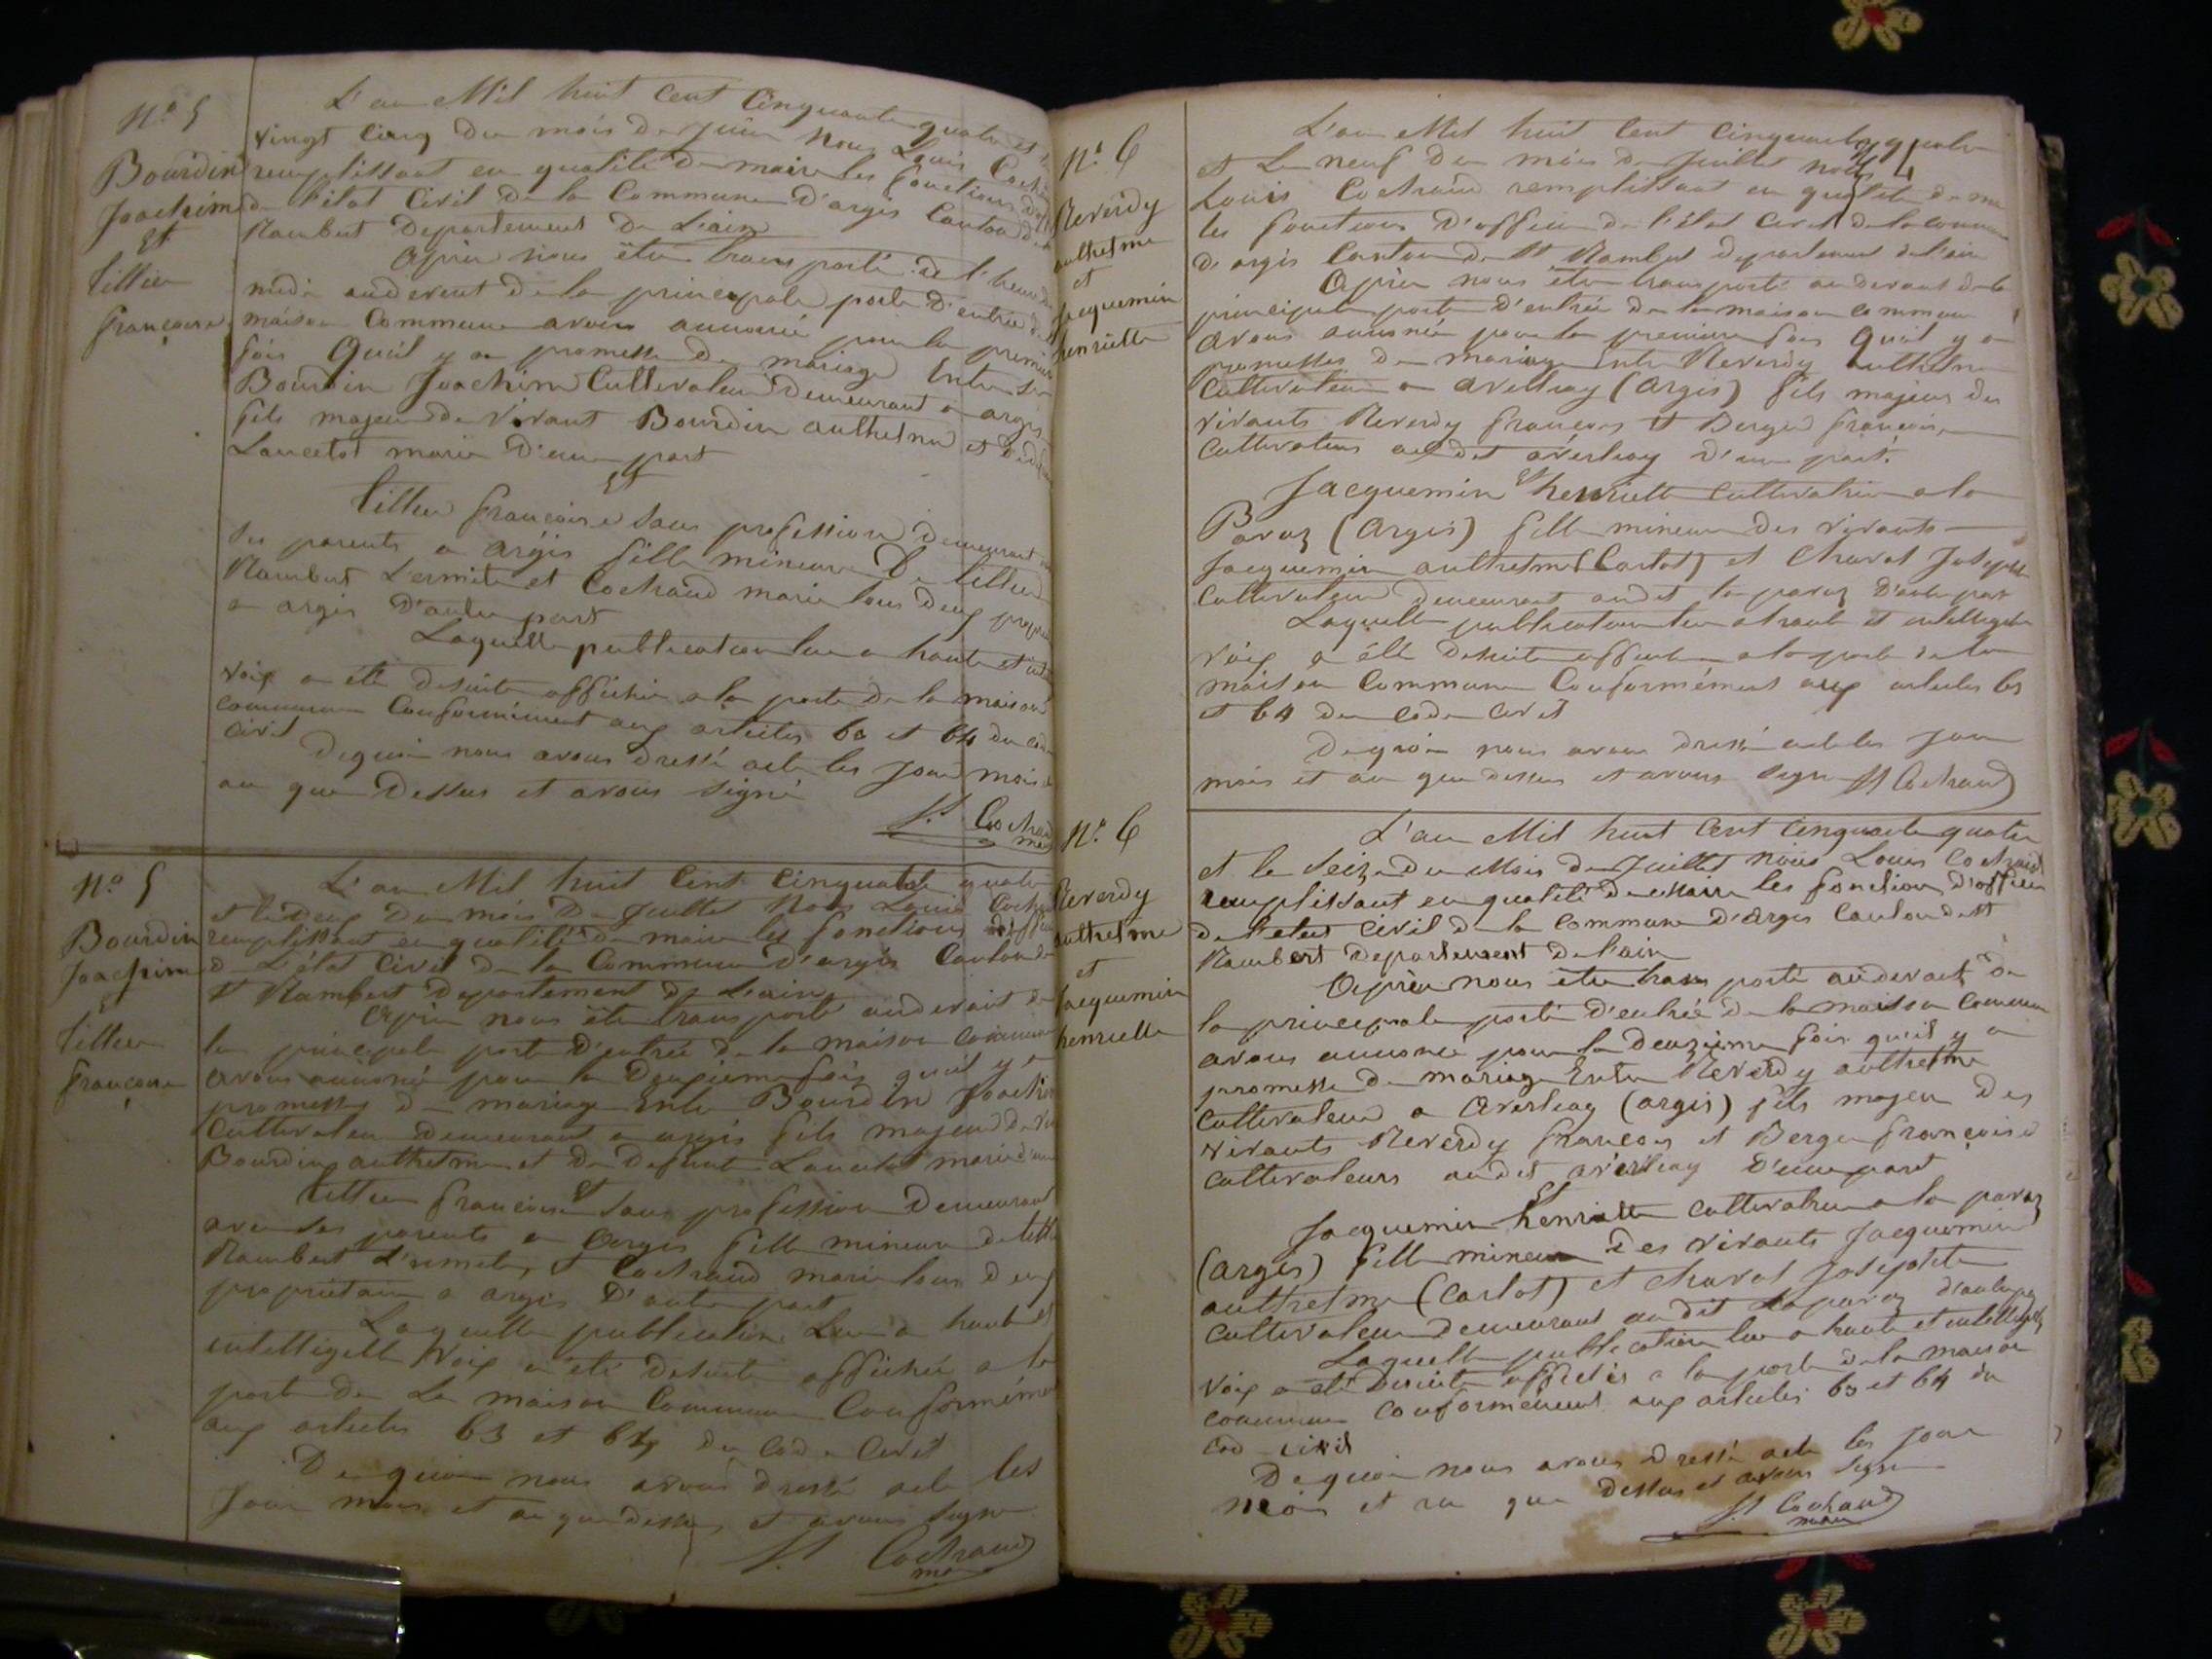 N.° 5
Bourdin
Joachim
Et
tillier
françoise
L'an Mil huit Cent Cinquante quatre et le
vingt cinq du mois de juin Nous Louis Cochaud
remplissant en qualité de maire les fonctions d'off
de l'état Civil de la Commune d'argis Canton de
Rambert Departement De L'ain
Après nous être transporté à l'heure de
midi audevent de la principale porte d'entrée de la
maison Commune avons annoncé pour la premiere
fois Qu'il y a promesse de mariage Entre
Bourdin Joachim Cultivateur Demeurant a argis
fils majeur de vivant Bourdin anthelme et De
Lancelot marie D'une part
Et
tillier françoise sans profession Demeurant
ses parents a argis fille mineure De tillier
Rambert L'ermite et Cochaud marie tous deux propri
a argis D'autre part
Laquelle publication lue a haute et
voix a été desuite affichée a la porte De la maison
commune Conformément aux articles 63 et 64 du code
civil
Dequoi nous avons dressé acte les Jour mois et
an que Dessus et avons signé
Cochaud
maire
N.° 5
Bourdin
Joachim
Et
tillier
françoise
L'an Mil huit Cent Cinquante quatre
et le deux du mois De Juillet Nous Louis Cochaud
remplissant en qualité de maire les fonctions
de L'état Civil de la Commune d'argis Canton de
St Rambert Departement De L'ain
Après nous être transporté audevant de
la principale porte D'entrée de la maison commune
avons annoncé pour la Deuxieme fois qu'il y a
promesse de mariage Entre Bourdin Joachim
Cultivateur Demeurant a argis fils majeur de
Bourdin anthelme et De Defunte Lancelot marie d'une
Et
tillier françoise sans profession Demeurant
avec ses parents a Argis fille mineure de
Rambert L'ermite et Cochaud marie tous deux
propriétaire a argis D'autre part
Laquelle publication Lue a haute et
intelligible Voix a été Desuite affichée a la
porte De La maison Commune Conformément
aux articles 63 et 64 du Code Civil
De quoi nous avons dressé acte les
Jour mois et an que dessus et avons signé
Cochaud
maire
N.° 6
Reverdy
anthelme
et
Jacquemin
henriette
4
L'an Mil huit Cent Cinquante quatre
et Le neuf Du mois de Juillet nous
Louis Cochaud remplissant en qualité de
les fonctions D'officier de l'état civil de la commune
d'argis Canton De St Rambert departement de l'ain
Après nous être transporté audevant de la
principale porte D'entrée de la maison commune
avons annoncé pour la premiere fois Qu'il y a
promesses de mariage Entre Reverdy anthelme
Cultivateur a averliaz (argis) fils majeur des
vivants Reverdy françois et Berger françoise
Cultivateurs audit averliaz D'une part
Et
Jacquemin henriette cultivatrice a la
Paraz (argis) fille mineure Des vivants
Jacquemin anthelme (Carlot) et Charvet Josephte
Cultivateurs Demeurant audit la paraz D'autre part
Laquelle publication lue a haute et intelligible
Voix a été Desuite affichée a la porte de la
maison Commune Conformément aux articles 63
et 64 du Code civil
De quoi nous avons dressé acte les jour
mois et an que dessus et avons signé Cochaud
N.° 6
Reverdy
anthelme
et
Jacquemin
henriette
L'an Mil huit Cent Cinquante quatre
et le Seize du Mois de Juillet nous Louis Cochaud
remplissant en qualité de Maire les fonctions d'officier
de l'etat civil de la Commune d'Argis Canton de St
Rambert Departement De l'ain
Après nous être transporté audevant de
la principale porte D'entrée de la maison commune
avons annoncé pour la Deuxieme fois qu'il y a
promesse de mariage Entre Reverdy anthelme
Cultivateur a Averliaz (argis) fils majeur Des
vivants Reverdy françois et Berger françoise
Cultivateurs audit averliaz D'une part
Et
Jacquemin henriette cultivatrice a la paraz
(argis) fille mineure Des vivants Jacquemin
anthelme (Carlot) et charvet Josephte
Cultivateurs Demeurant audit Laparaz
Laquelle publication lue a haute et intelligible
Voix a été Desuite affichée a la porte de la maison
commune Conformément aux articles 63 et 64 du
code civil
De quoi nous avons Dressé acte les jour
mois et an que dessus et avons signé
Cochaud
maire